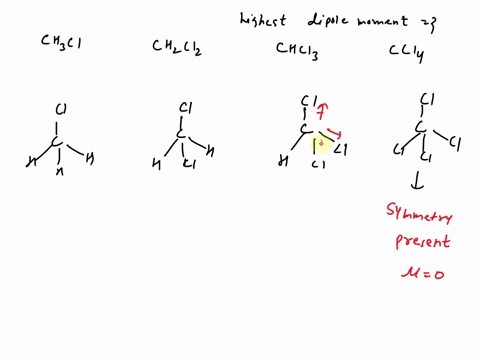 highest dipole moment =?
CH3Cl CH2Cl2 CHCl3 CCl4
Cl Cl Cl Cl
C C C C
H H H H Cl H H Cl Cl Cl Cl Cl
Symmetry
present
μ=0